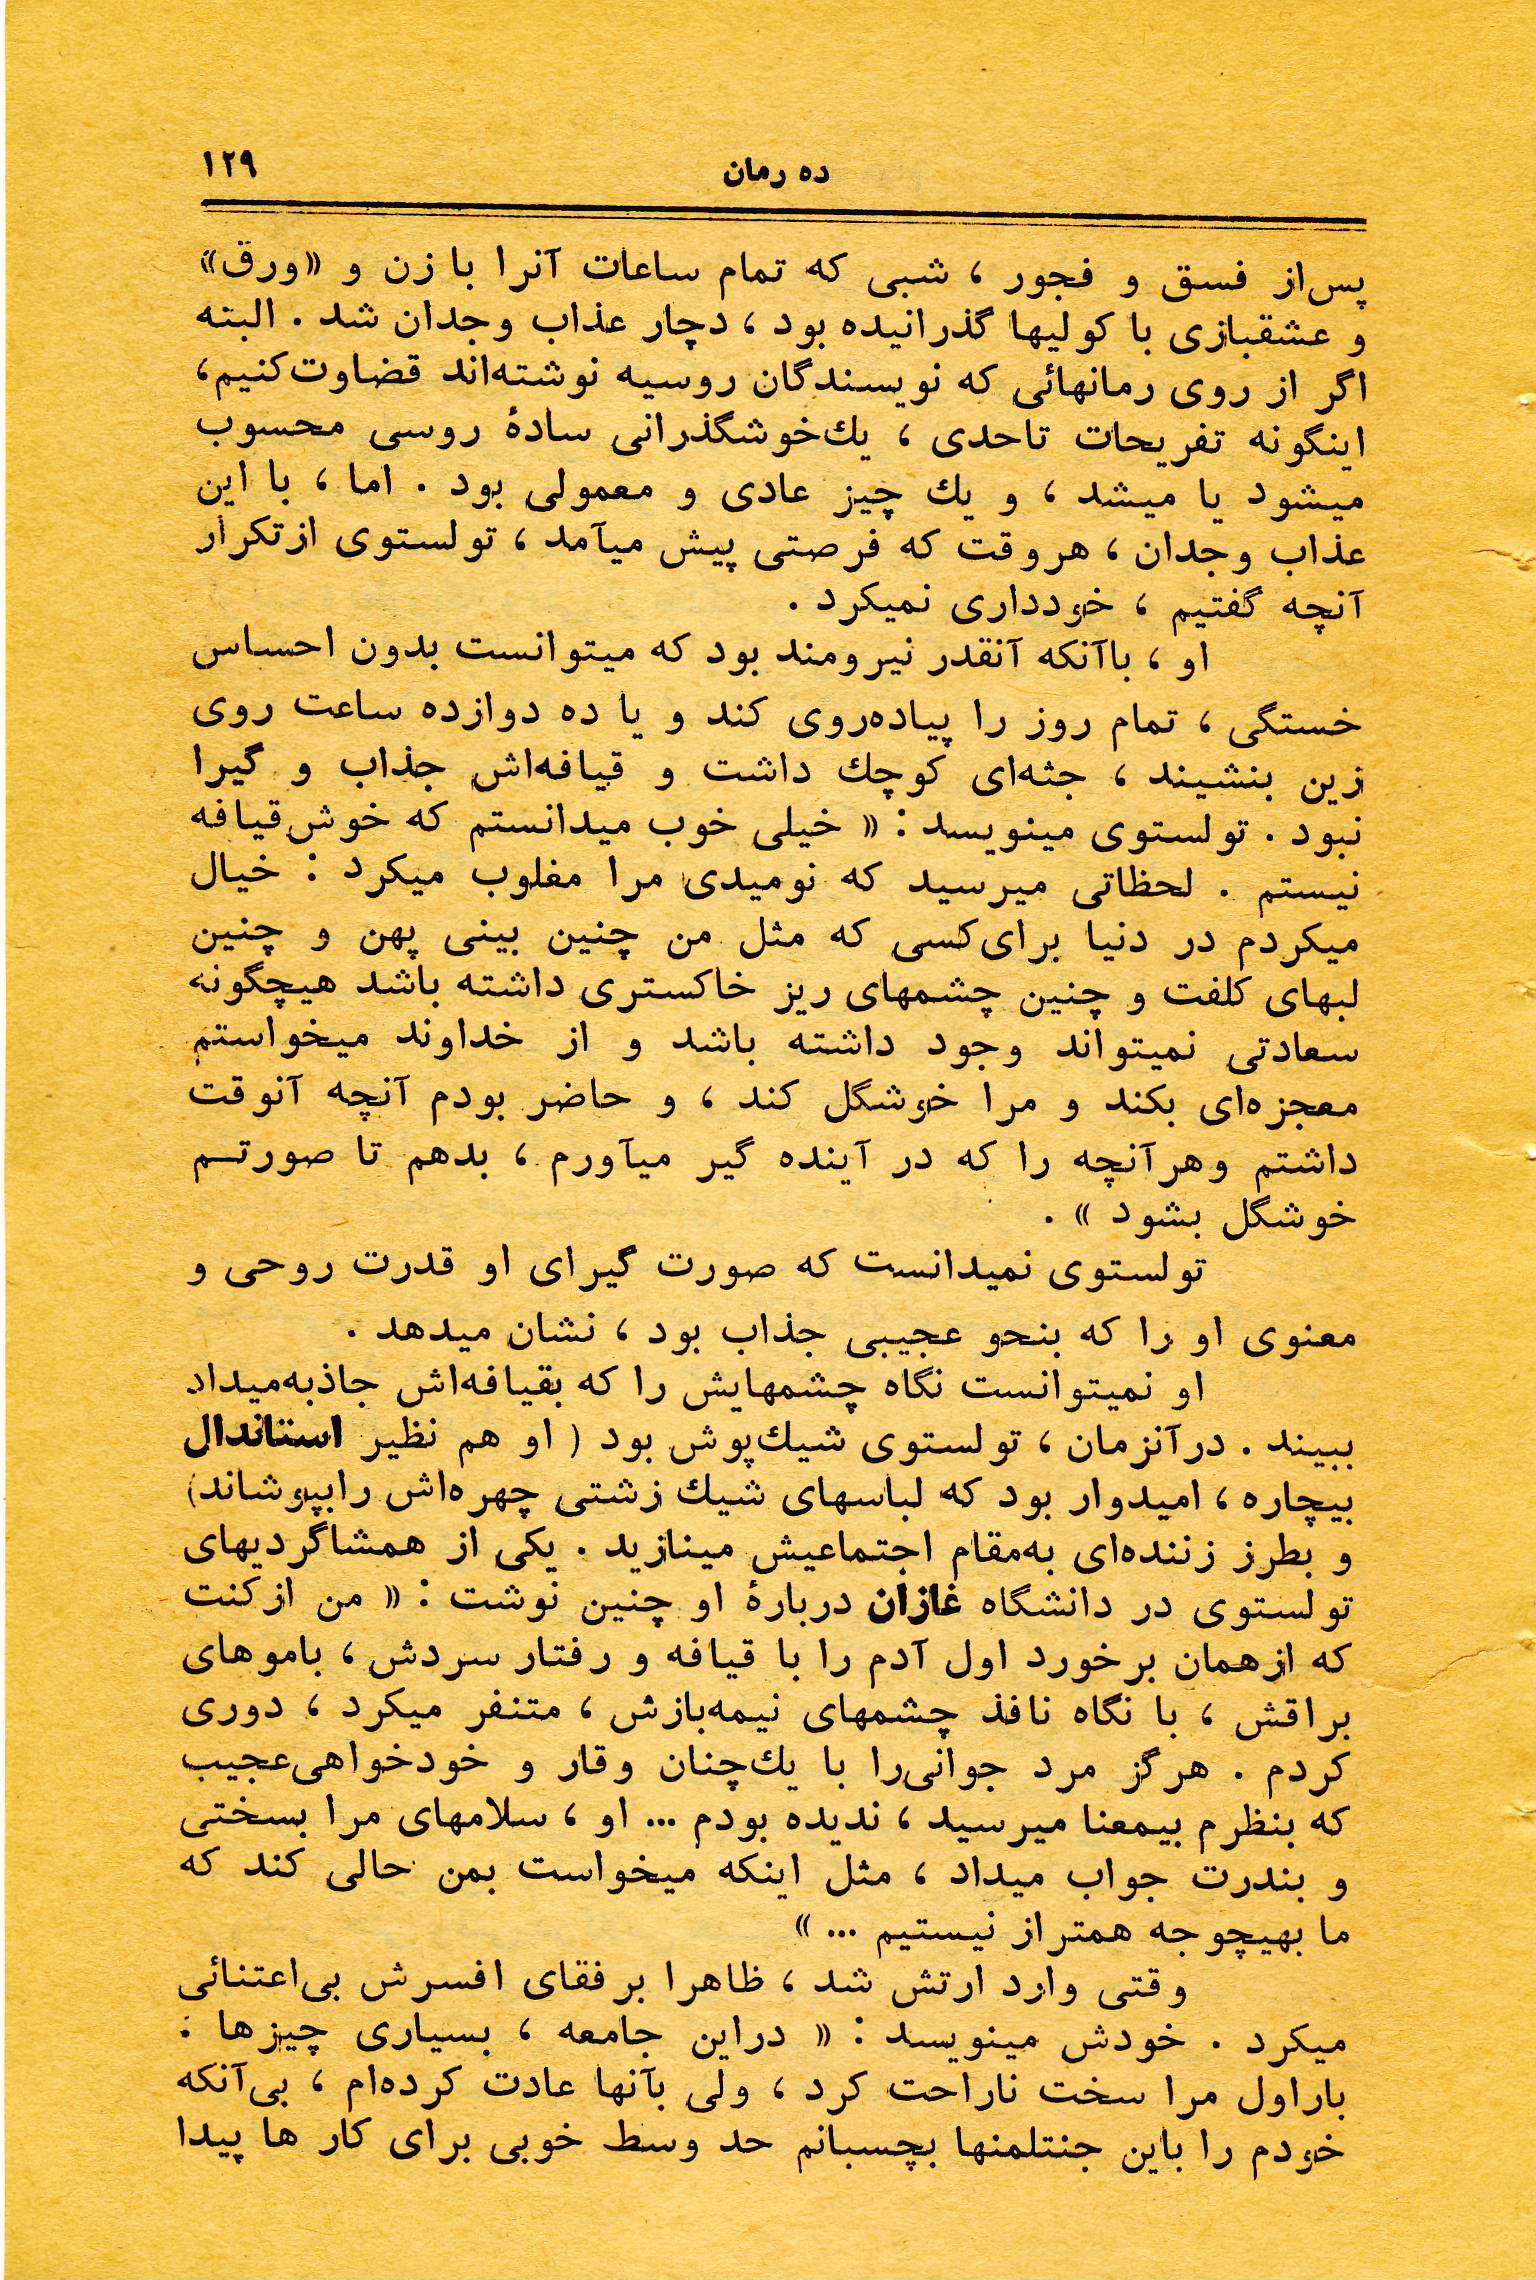 ده رمان ۱۲۹
پس‌از فسق و فجور ، شبی که تمام ساعات آنرا با زن و «ورق»
و عشقبازی با کولیها گذرانیده بود ، دچار عذاب وجدان شد . البته
اگر از روی رمانهائی که نویسندگان روسیه نوشته‌اند قضاوت‌کنیم،
اینگونه تفریحات تاحدی ، یك‌خوشگذرانی سادهٔ روسی محسوب
میشود یا میشد ، و یك چیز عادی و معمولی بود . اما ، با این
عذاب وجدان ، هروقت که فرصتی پیش میآمد ، تولستوی ازتکرار
آنچه گفتیم ، خودداری نمیکرد .
او ، باآنکه آنقدر نیرومند بود که میتوانست بدون احساس
خستگی ، تمام روز را پیاده‌روی کند و یا ده دوازده ساعت روی
زین بنشیند ، جثه‌ای کوچك داشت و قیافه‌اش جذاب و گیرا
نبود . تولستوی مینویسد : « خیلی خوب میدانستم که خوش‌قیافه
نیستم . لحظاتی میرسید که نومیدی مرا مغلوب میکرد : خیال
میکردم در دنیا برای‌کسی که مثل من چنین بینی پهن و چنین
لبهای کلفت و چنین چشمهای ریز خاکستری داشته باشد هیچگونه
سعادتی نمیتواند وجود داشته باشد و از خداوند میخواستم
معجزه‌ای بکند و مرا خوشگل کند ، و حاضر بودم آنچه آنوقت
داشتم وهرآنچه را که در آینده گیر میآورم ، بدهم تا صورتم
خوشگل بشود » .
تولستوی نمیدانست که صورت گیرای او قدرت روحی و
معنوی او را که بنحو عجیبی جذاب بود ، نشان میدهد .
او نمیتوانست نگاه چشمهایش را که بقیافه‌اش جاذبه‌میداد
ببیند . درآنزمان ، تولستوی شیك‌پوش بود ( او هم نظیر استاندال
بیچاره ، امیدوار بود که لباسهای شیك زشتی چهره‌اش رابپوشاند)
و بطرز زننده‌ای به‌مقام اجتماعیش مینازید . یکی از همشاگردیهای
تولستوی در دانشگاه غازان دربارهٔ او چنین نوشت : « من ازکنت
که ازهمان برخورد اول آدم را با قیافه و رفتار سردش ، باموهای
براقش ، با نگاه نافذ چشمهای نیمه‌بازش ، متنفر میکرد ، دوری
کردم . هرگز مرد جوانی‌را با یك‌چنان وقار و خودخواهی‌عجیب
که بنظرم بیمعنا میرسید ، ندیده بودم ... او ، سلامهای مرا بسختی
و بندرت جواب میداد ، مثل اینکه میخواست بمن حالی کند که
ما بهیچوجه همتراز نیستیم ... »
وقتی وارد ارتش شد ، ظاهرا برفقای افسرش بی‌اعتنائی
میکرد . خودش مینویسد : « دراین جامعه ، بسیاری چیزها :
باراول مرا سخت ناراحت کرد ، ولی بآنها عادت کرده‌ام ، بی‌آنکه
خودم را باین جنتلمنها بچسبانم حد وسط خوبی برای کار ها پیدا